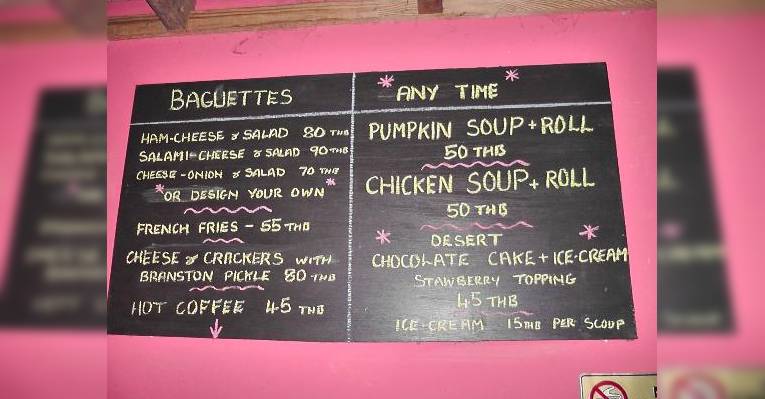 BAGUETTES
HAM-CHEESE & SALAD 80 THB
SALAMI-CHEESE & SALAD 90 THB
CHEESE-ONION & SALAD 70 THB
*OR DESIGN YOUR OWN*
FRENCH FRIES - 55 THB
CHEESE & CRACKERS WITH
BRANSTON PICKLE 80 THB
HOT COFFEE 45 THB
* ANY TIME *
PUMPKIN SOUP + ROLL
50 THB
CHICKEN SOUP + ROLL
50 THB
* DESERT *
CHOCOLATE CAKE + ICE-CREAM
STAWBERRY TOPPING
45 THB
ICE-CREAM 15 THB PER SCOUP